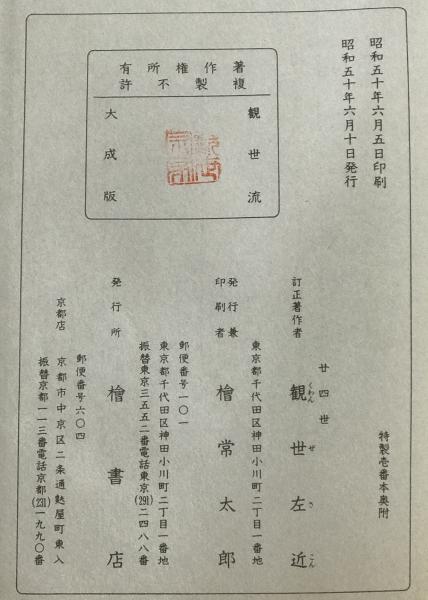 昭和五十年六月五日印刷
昭和五十年六月十日発行
著作権所有
複製不許
観世流
大成版
特製壱番本奥附
廿四世
訂正著作者 観世左近
くわんぜさこん
東京都千代田区神田小川町二丁目一番地
発行兼印刷者 檜常太郎
郵便番号一〇一
東京都千代田区神田小川町二丁目一番地
振替東京三五五二番電話東京(291)二四八八番
発行所 檜書店
京都店
郵便番号六〇四
京都市中京区二条通麩屋町東入
振替京都一一三番電話京都(231)一九九〇番